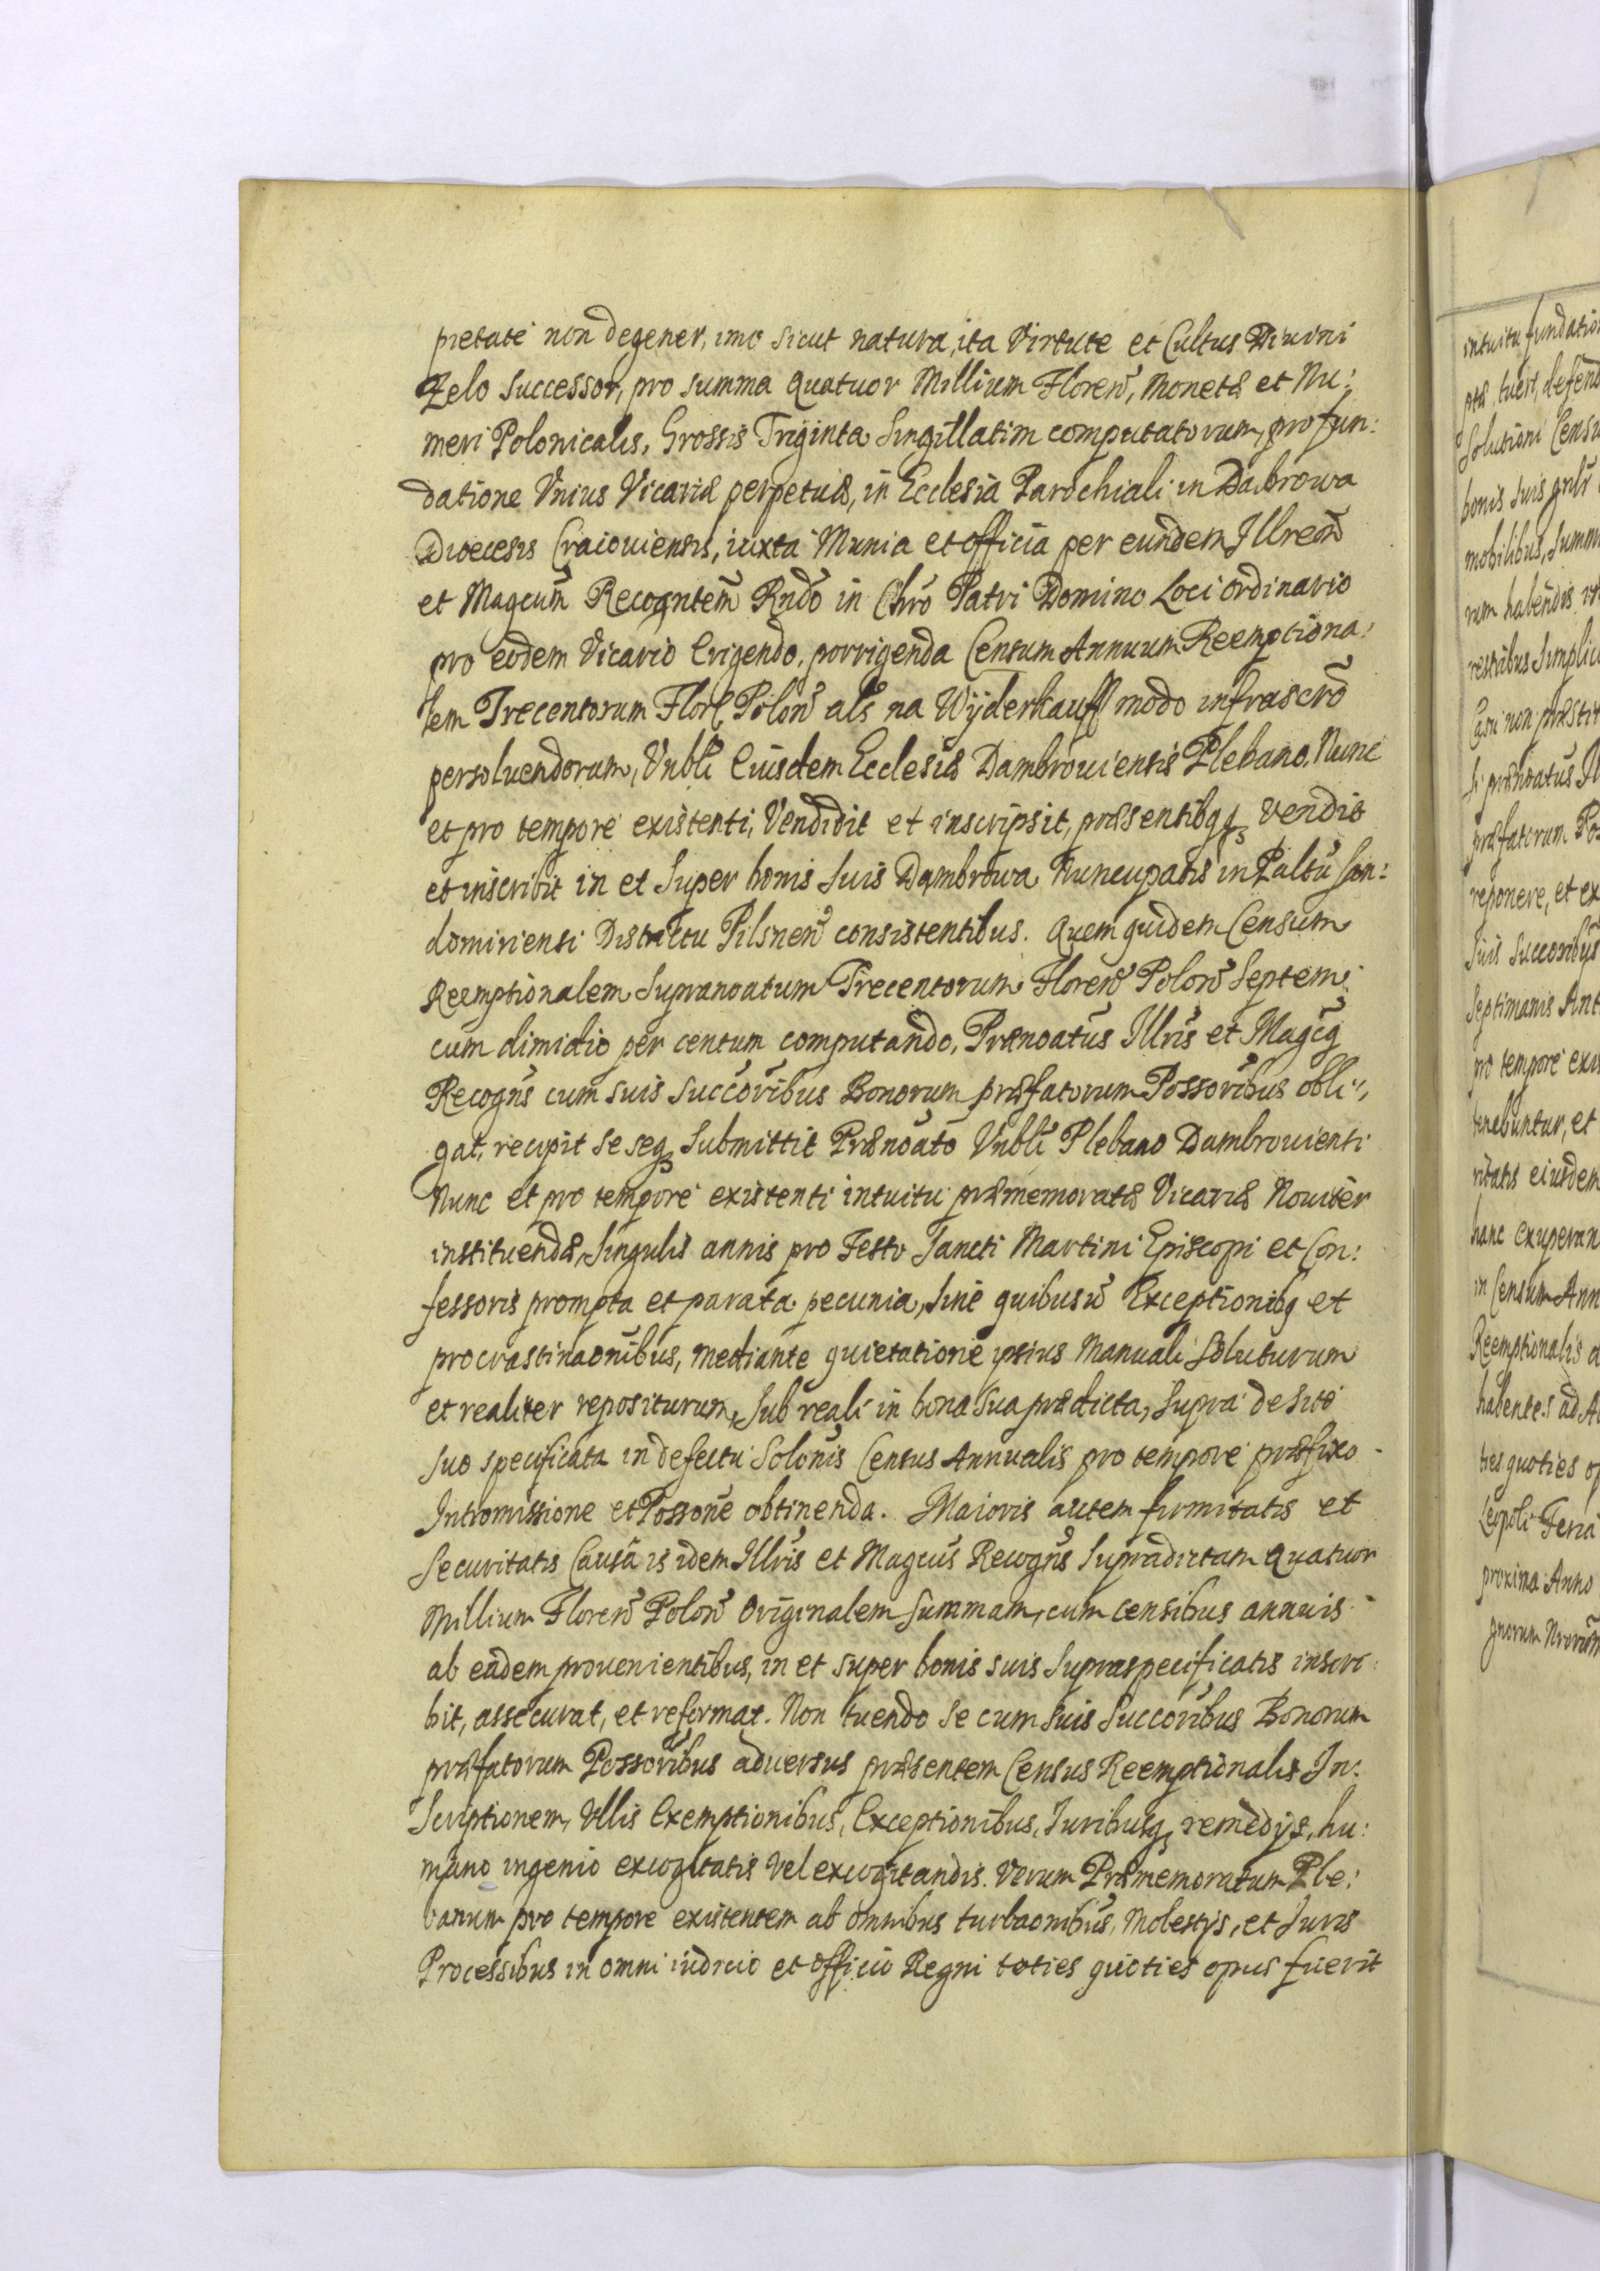 pietate non degener, imo sicut natura, ita Virtute et Cultus Diuini
Zelo successor, pro summa quatuor Millium Floreñ, Monetæ et Nu:
meri Polonicalis, Grossis Triginta Singillatim computatorum, pro fun:
datione Vnius Vicariæ perpetuæ, in Ecclesia Parochiali in Dąbrowa
Dioecesis Cracouiensis, iuxta Munia et officia per eundem Illrem
et Magcum Recogntem Rndo in Chro Patri Domino Loci ordinario
pro eodem Vicario Erigendo, porrigenda Censum Annuum Reemptiona:
lem Trecentorum Flor Poloñ als na Wÿderkauff modo infrascro
persoluendorum, Vnbli Eiusdem Ecclesiæ Dambrouiensis Plebano, Nunc
et pro tempore existenti, Vendidit et inscripsit, præsentibqq vendit
et inscribit in et Super bonis Suis Dambrowa Nuncupatis in Paltu San:
domiriensi Districtu Pilsneñ consistentibus. Quem quidem Censum
Reemptionalem Supranoatum Trecentorum Floreñ Poloñ Septem
cum dimidio per centum computando, Prænoatus Illris et Magcq
Recogns cum suis Succoribus Bonorum præfatorum Possoribus obli:
gat, recipit se seq Submittit Prænoato Vnbli Plebano Dambrouiensi
Nunc et pro tempore existenti intuitu præmemoratæ Vicariæ Nouiter
instituendæ, Singulis annis pro Festo Sancti Martini Episcopi et Con:
fessoris prompta et parata pecunia, Sine quibusuis Exceptionibq et
procrastinaonibus, mediante quietatione ipsius Manuali Soluturum
et realiter repositurum, Sub reali in bona sua prædicta, Supra de Sitú
Suo specificata in defectu Solonis Census Annualis pro tempore præfixo
Intromissione et Possone obtinenda. Maioris autem firmitatis et
Securitatis Causa is idem Illris et Magcus Recogns Supradictam Quatuor
Millium Floreñ Poloñ Originalem Summam, cum censibus annuis
ab eadem prouenientibus, in et super bonis suis Supraspecificatis inscri:
bit, assecurat, et reformat. Non tuendo se cum suis Succoribus Bonorum
præfatorum Possoribus aduersus præsentem Census Reemptionalis In:
scriptionem, Vllis Exemptionibus, Exceptionibus, Iuribusq remedÿs, hu:
mano ingenio excogitatis Vel excogitandis. Verum Præmemoratum Ple:
banum pro tempore existentem ab omnibus turbaonibus, Molestÿs, et Iuris
Processibus in omni iudicio et officio Regni toties quoties opus fuerit
intuitu fundation
ptæ tueri, defend
Solutioni Censu
bonis suis gnlr
mobilibus, Summ
rum habendis
restibus Simplic
Casu non præstit
Si prænoatus Il
præfatorum Pos
reponere, et ex
Suis Succoribus
Septimanis Ant
pro tempore exis
tenebuntur, et
ritatis eiusdem
hanc exuperan
in Censum Ann
Reemptionalis a
habentes ad A
ties quoties op
Leopoli Feria
proxima Anno
gnorum Nrorum